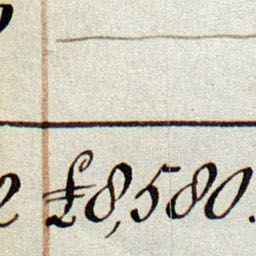 £8,580.